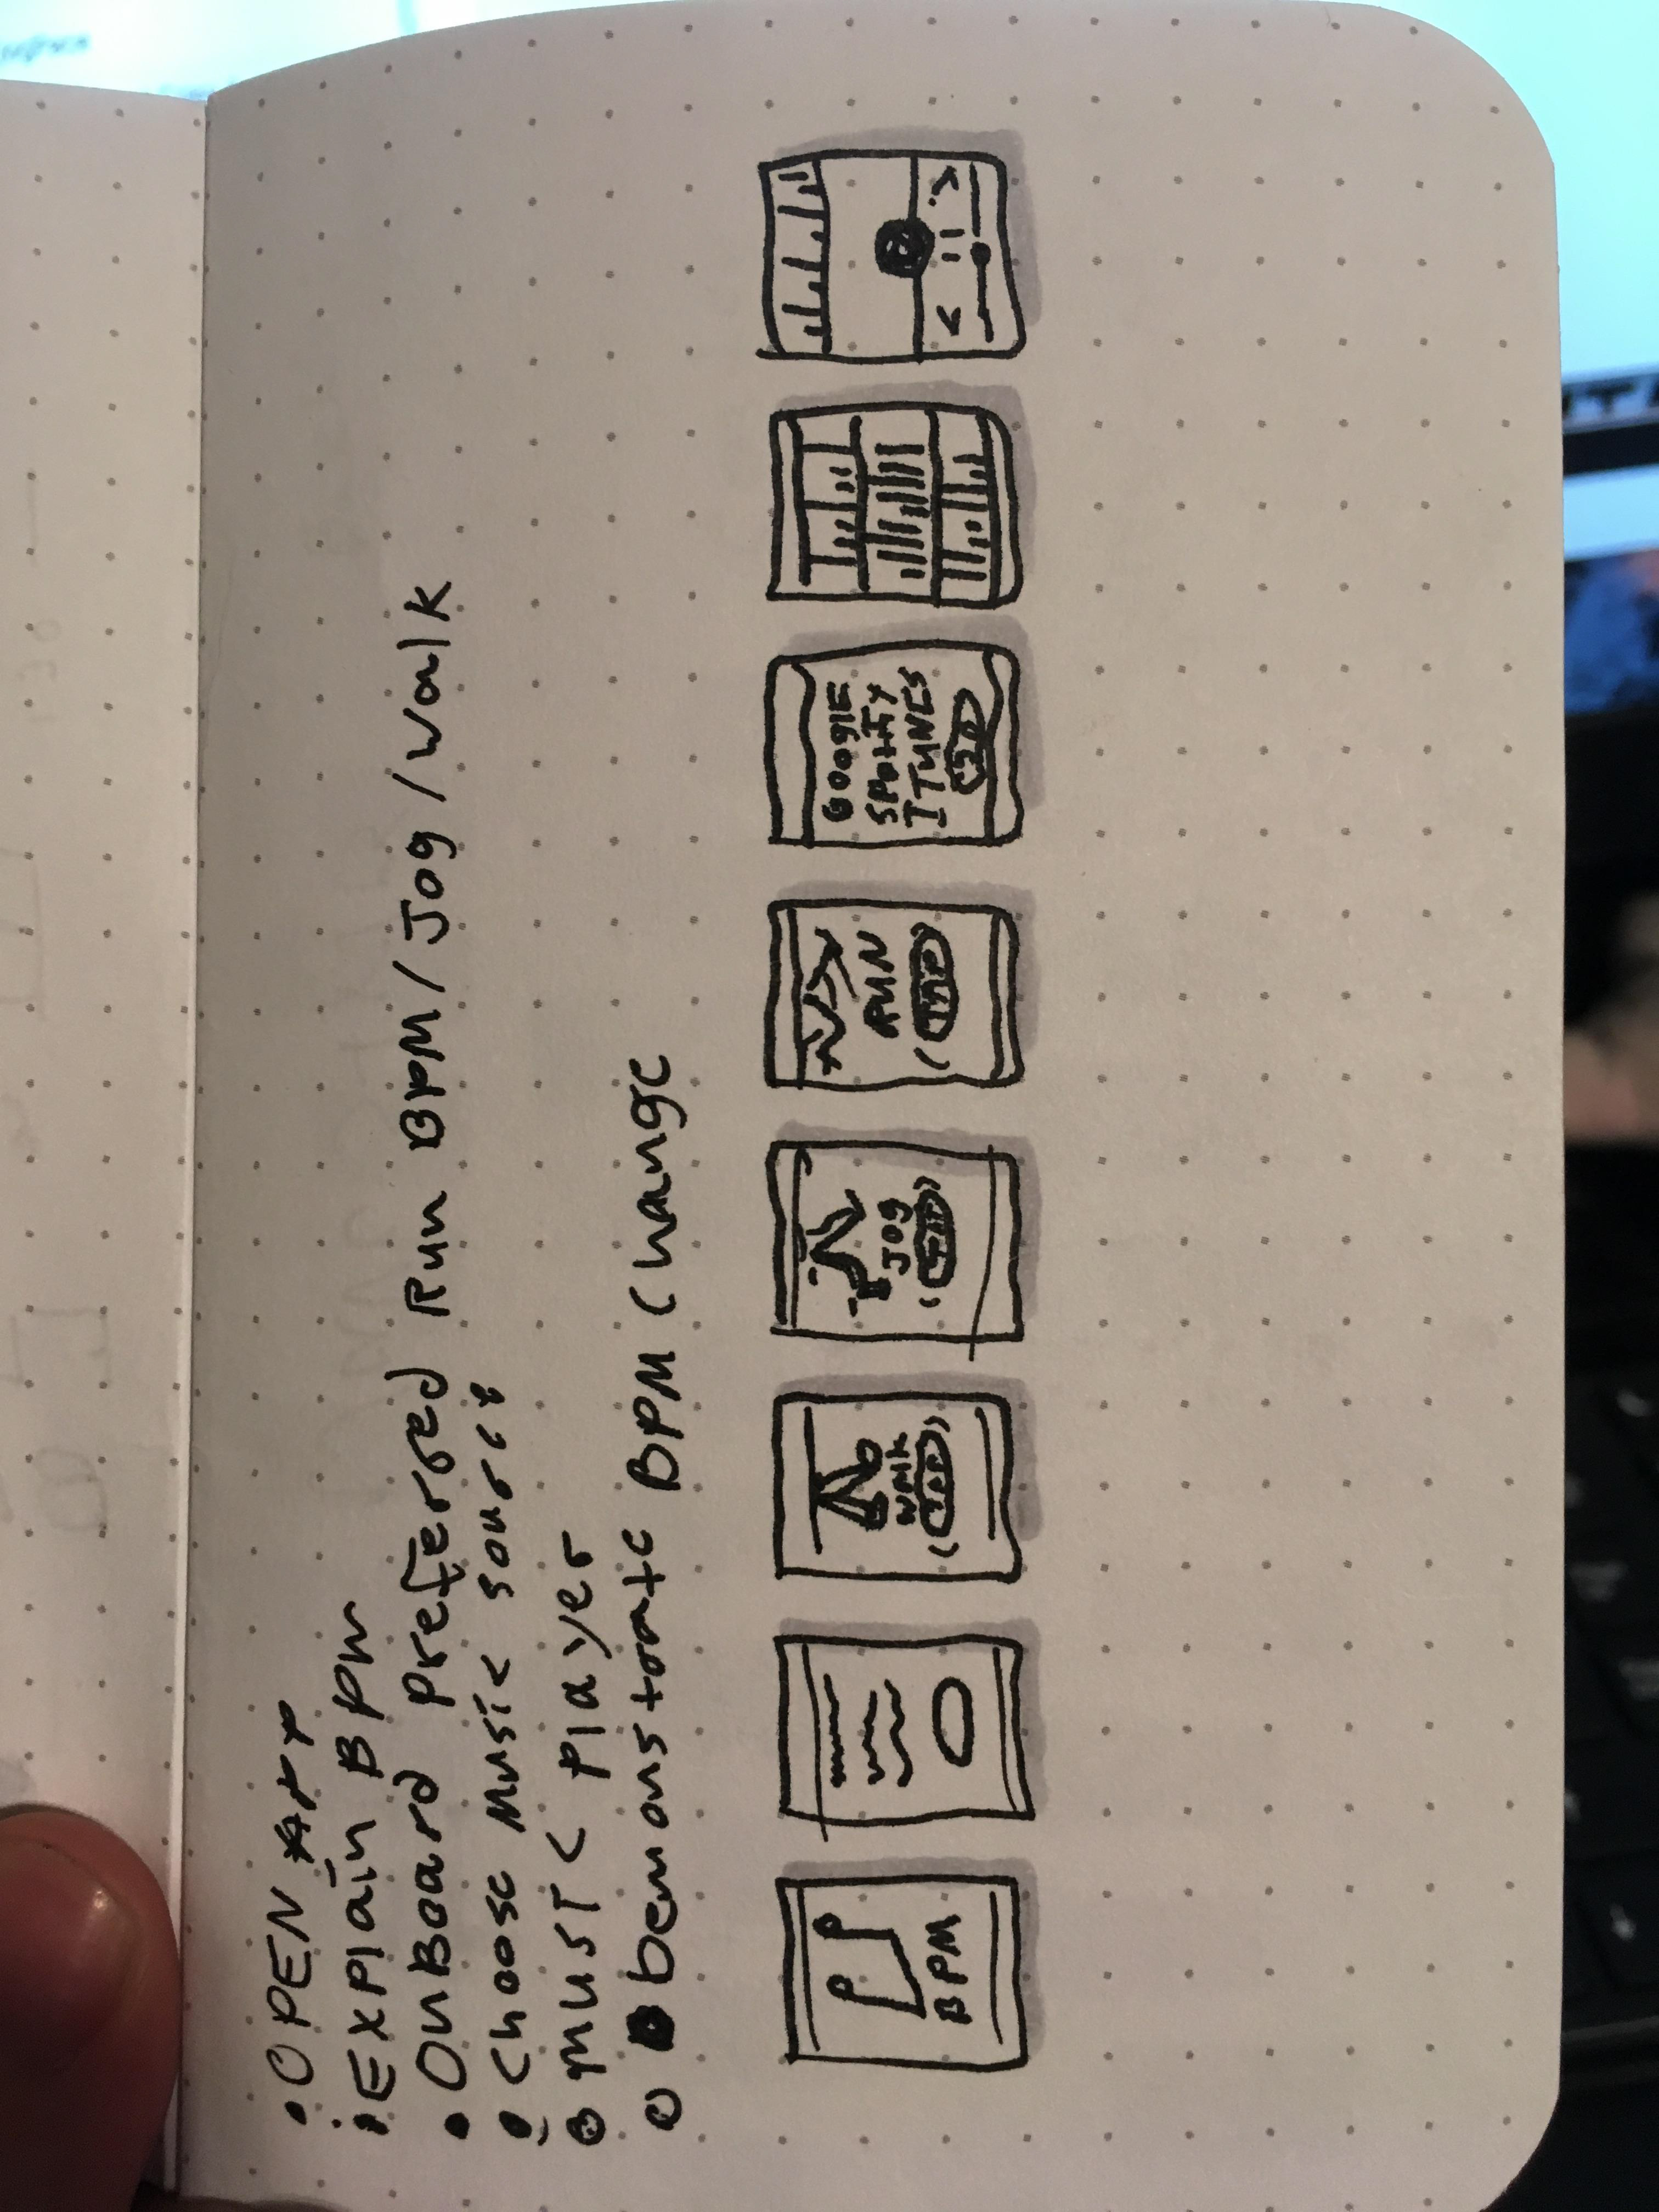 OPEN APP
EXPlain BPM
OnBoard preferred Run BPM/Jog/walk
Choose Music source
Must < Player
Demonstrate BPM Change
BPM
WALK
TAP
JOG
TAP
RUN
TAP
GOOglE
SPotify
ITUNES